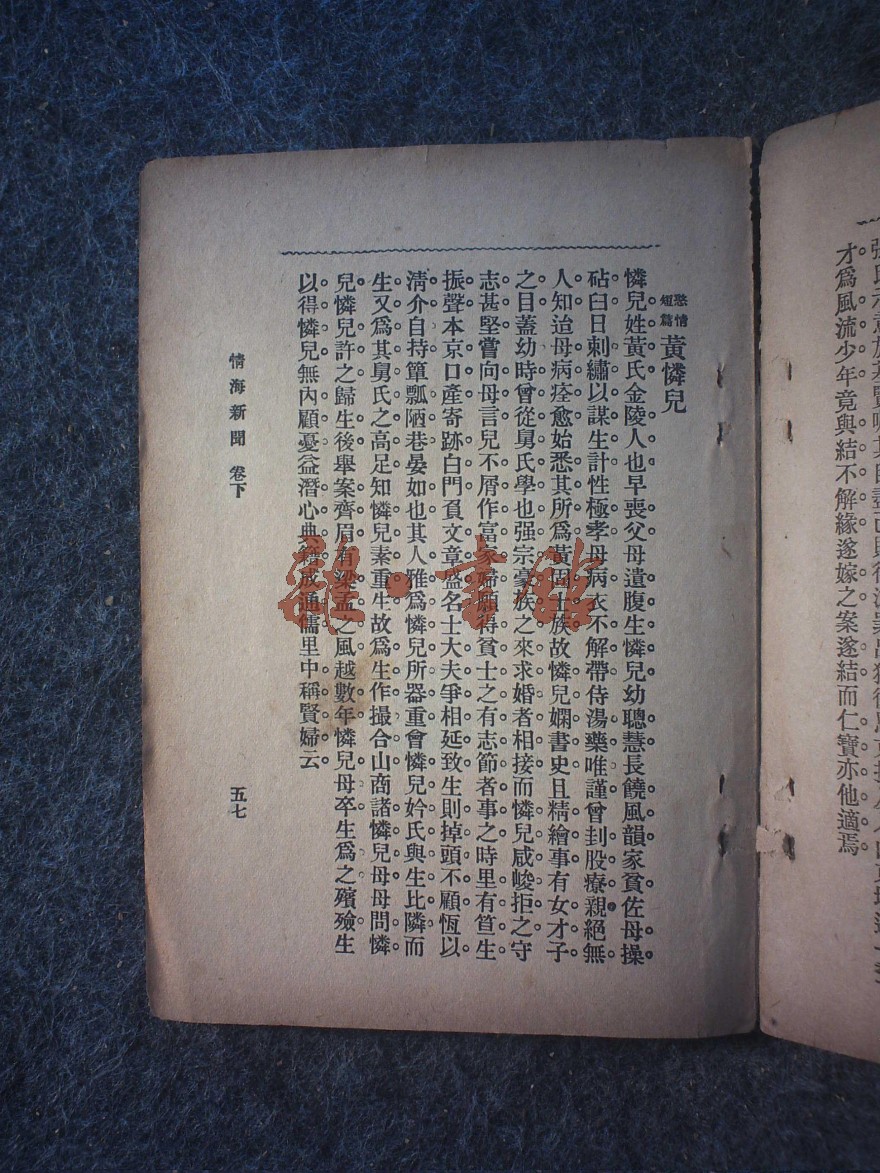 才爲風流少年竟與結不解緣遂嫁之案遂結而仁寶亦他適焉
愁情短篇 黃憐兒
憐兒姓黃氏金陵人也早喪父母遺腹生憐兒幼聰慧長饒風韻家貧佐母操
砧臼日刺繡以謀生計性極孝母病衣不解帶侍湯藥唯謹曾刲股療親絕無
人知迨母病痊愈始悉其所爲黃固士族故憐兒嫻書史且精繪事有女才子
之目蓋幼時曾從舅氏學也强宗豪族之來求婚者相接而憐兒咸峻拒之守
志甚堅嘗向母言兒不屑作富家婦願得貧士之有志節者事之時里有笪生
振聲本京口產寄跡白門負文章盛名士大夫爭相延致生則掉頭不顧恆以
淸介自持簞瓢陋巷晏如也其人雅爲憐兒所器重會憐兒妗氏與生比隣而
生又爲其舅氏之高足知憐兒素重生故爲生作撮合山商諸憐兒母母問憐
兒憐兒許之歸生後舉案齊眉有梁孟之風越數年憐兒母卒生爲之殯殮生
以得憐兒無內顧憂益潛心典籍成通儒里中稱賢婦云
情海新聞 卷下
五七